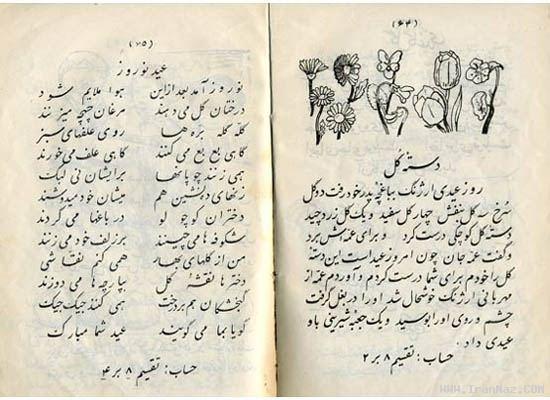 (۲۴)
دسته گل
روز عیدی ارژنگ بباغچهٔ پدر خود رفت دو گل
سرخ سه گل بنفش چهار گل سفید و یک گل زرد چید
دسته گل کوچکی درست کرد و برای عمه‌اش برد
و گفت عمه جان چون امروز عید است این دستهٔ
گل را خودم برای شما درست کردم و آوردم عمه از
مهربانی ارژنگ خوشحال شد او را در بغل گرفت
چشم و روی او را بوسید و یک جعبه شیرینی باو
عیدی داد .
حساب : تقسیم ۸ بر ۲
(۲۵)
عید نوروز
نوروز آمد بعد از این هوا ملایم شود
درختان گل می دهند مرغان چهچه میزنند
گله گله بره ها روی علفهای سبز
گاهی بع بع می کنند گاهی علف می خورند
همی زنند چوپانها برایشان نی لبک
زنهای ده‌نشین هم میشان خود میدوشند
دختران کوچولو در باغها می گردند
شکوفه ها می چینند بر زلف خود می زنند
من از گلهای بهار همی کنم نقاشی
دخترها نقشهٔ گل بپارچه ها می دوزند
گنجشکان هم بر درخت همی کنند جیک جیک
گویا بما می گویند عید شما مبارک
حساب : تقسیم ۸ بر ۴
WWW.IranNaz.com